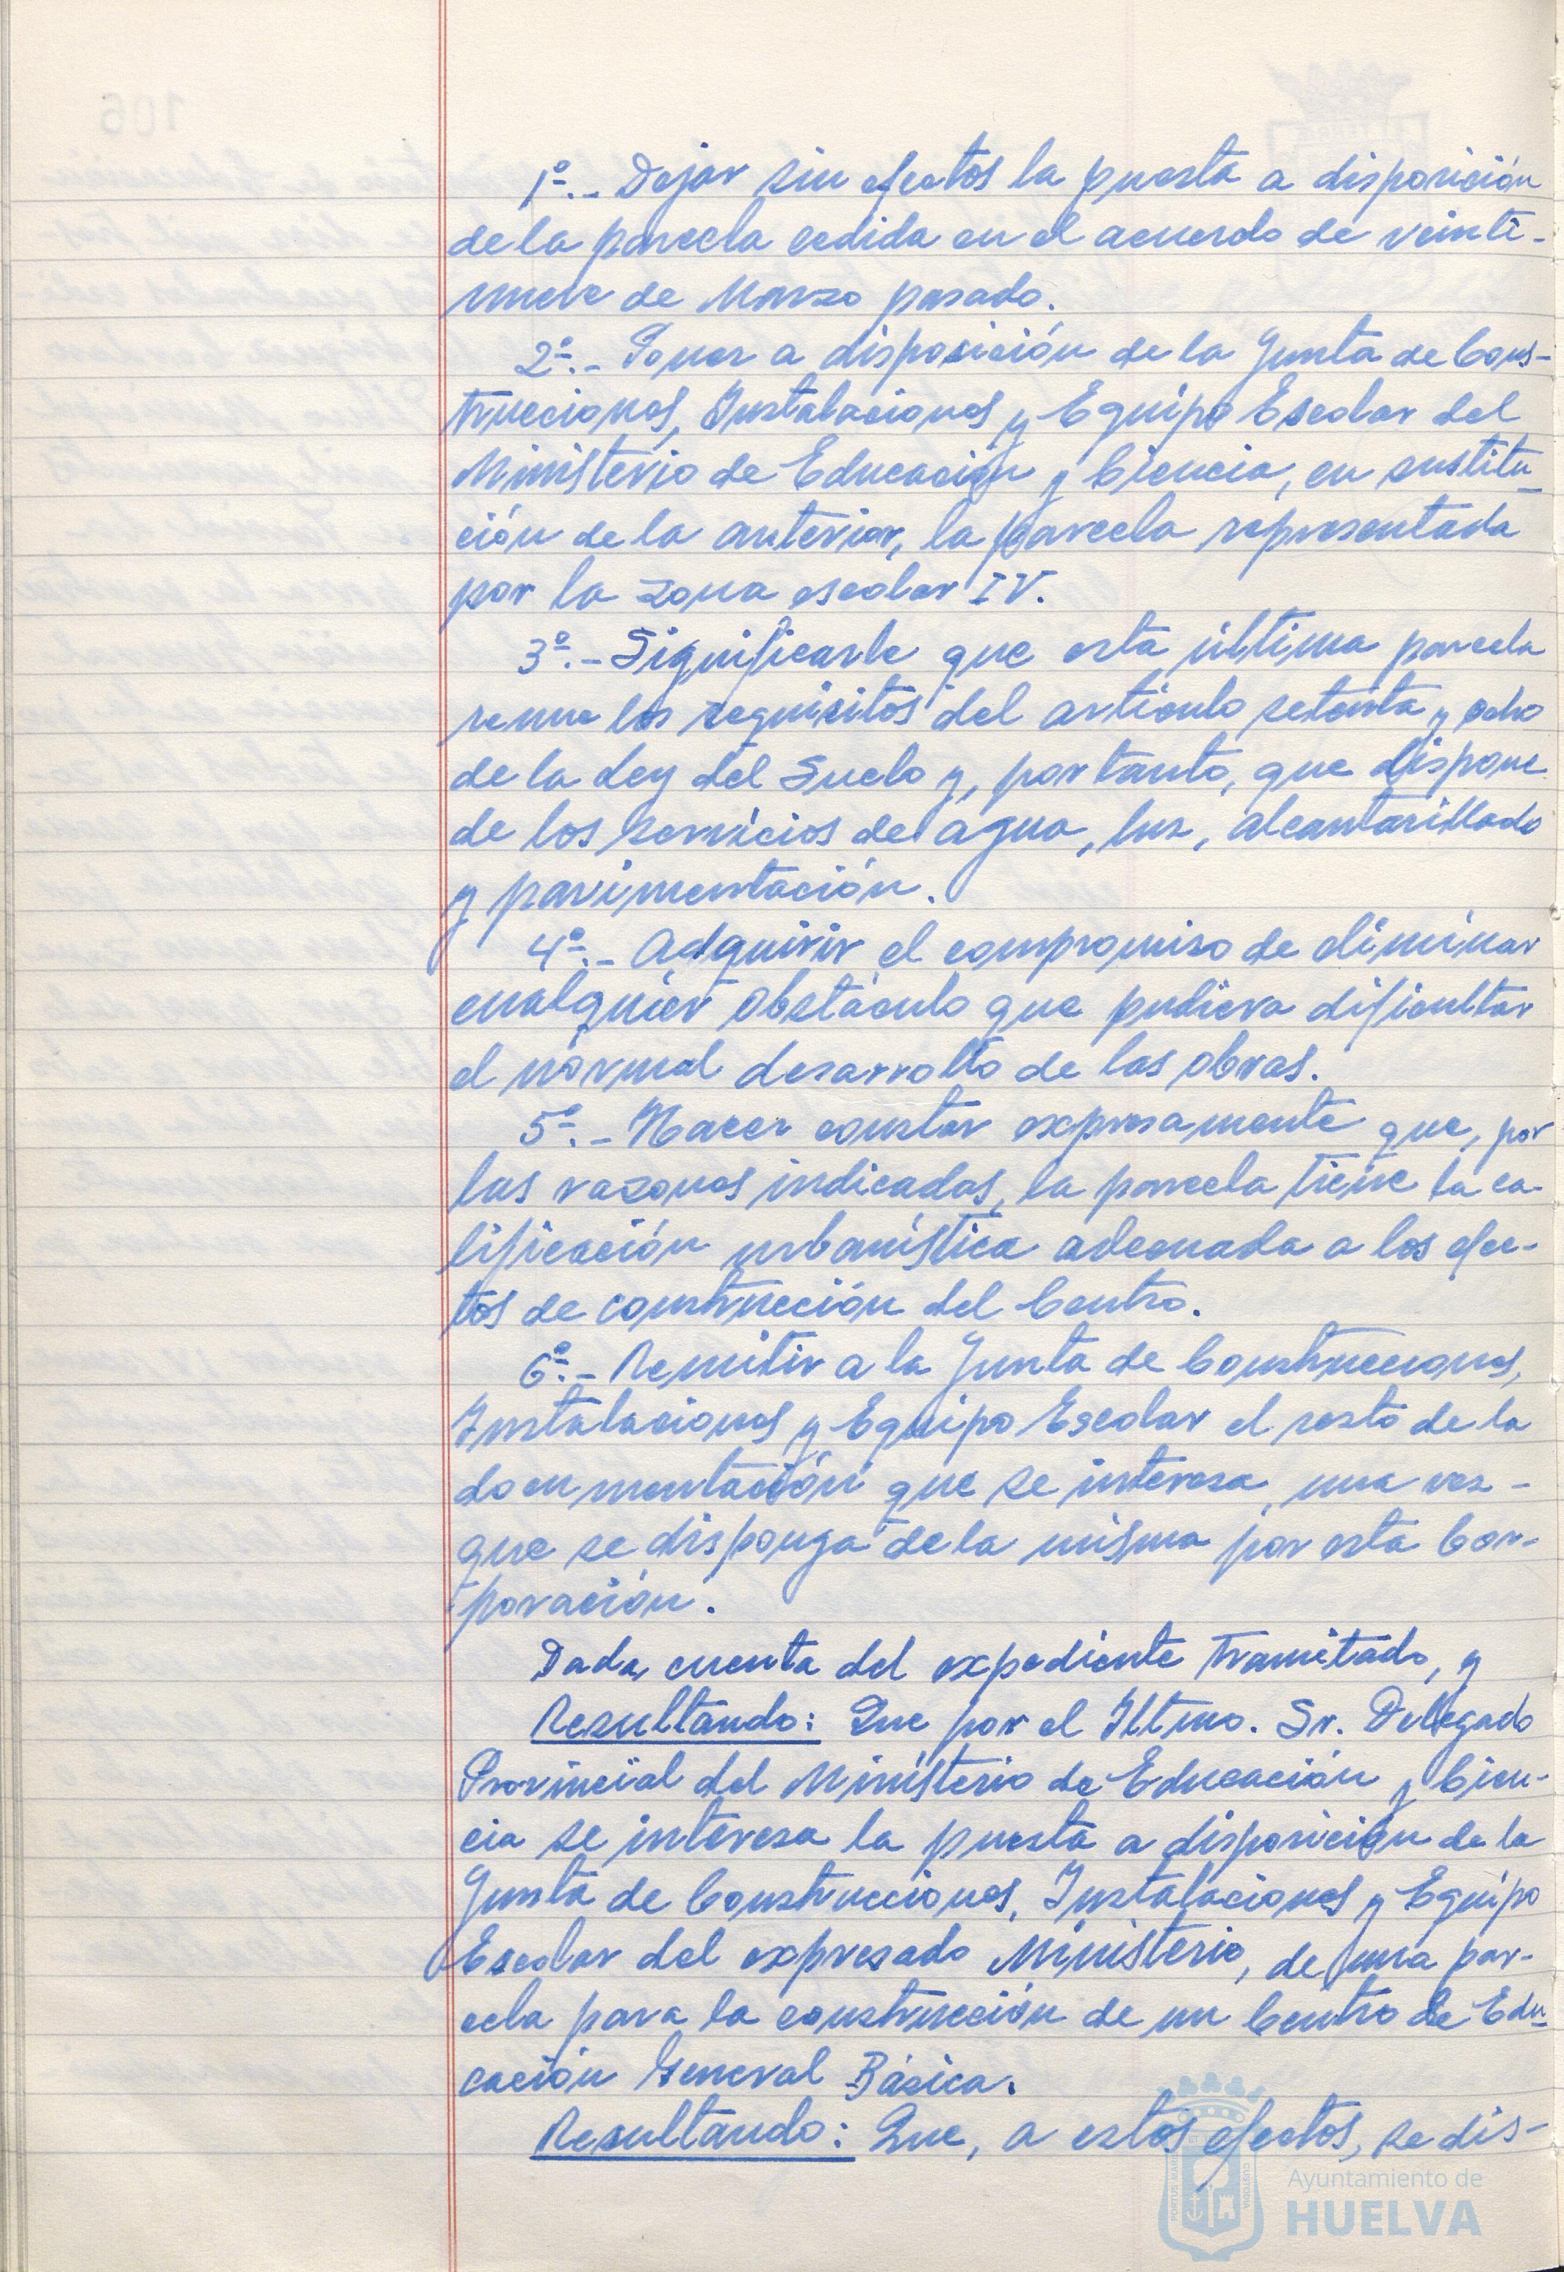 1º.- Dejar sin efectos la puesta a disposición
de la parcela cedida en el acuerdo de veinti-
nueve de Marzo pasado.
2º.- Poner a disposición de la Junta de Cons-
trucciones, Instalaciones y Equipo Escolar del
Ministerio de Educación y Ciencia, en sustitu-
ción de la anterior, la parcela representada
por la zona escolar IV.
3º.- Significarle que esta última parcela
reune los requisitos del artículo setenta y ocho
de la Ley del Suelo y, por tanto, que dispone
de los servicios de agua, luz, alcantarillado
y pavimentación.
4º.- Adquirir el compromiso de eliminar
cualquier obstáculo que pudiera dificultar
el normal desarrollo de las obras.
5º.- Hacer constar expresamente que, por
las razones indicadas, la parcela tiene la ca-
lificación urbanística adecuada a los efec-
tos de construcción del Centro.
6º.- Remitir a la Junta de Construcciones,
Instalaciones y Equipo Escolar el resto de la
documentación que se interesa, una vez -
que se disponga de la misma por esta Cor-
poración.
Dada cuenta del expediente tramitado, y
Resultando: Que por el Iltmo. Sr. Delegado
Provincial del Ministerio de Educación y Cien-
cia se interesa la puesta a disposición de la
Junta de Construcciones, Instalaciones y Equipo
Escolar del expresado Ministerio, de una par-
cela para la construcción de un Centro de Edu-
cación General Básica.
Resultando: Que, a estos efectos, se dis-
Ayuntamiento de
HUELVA